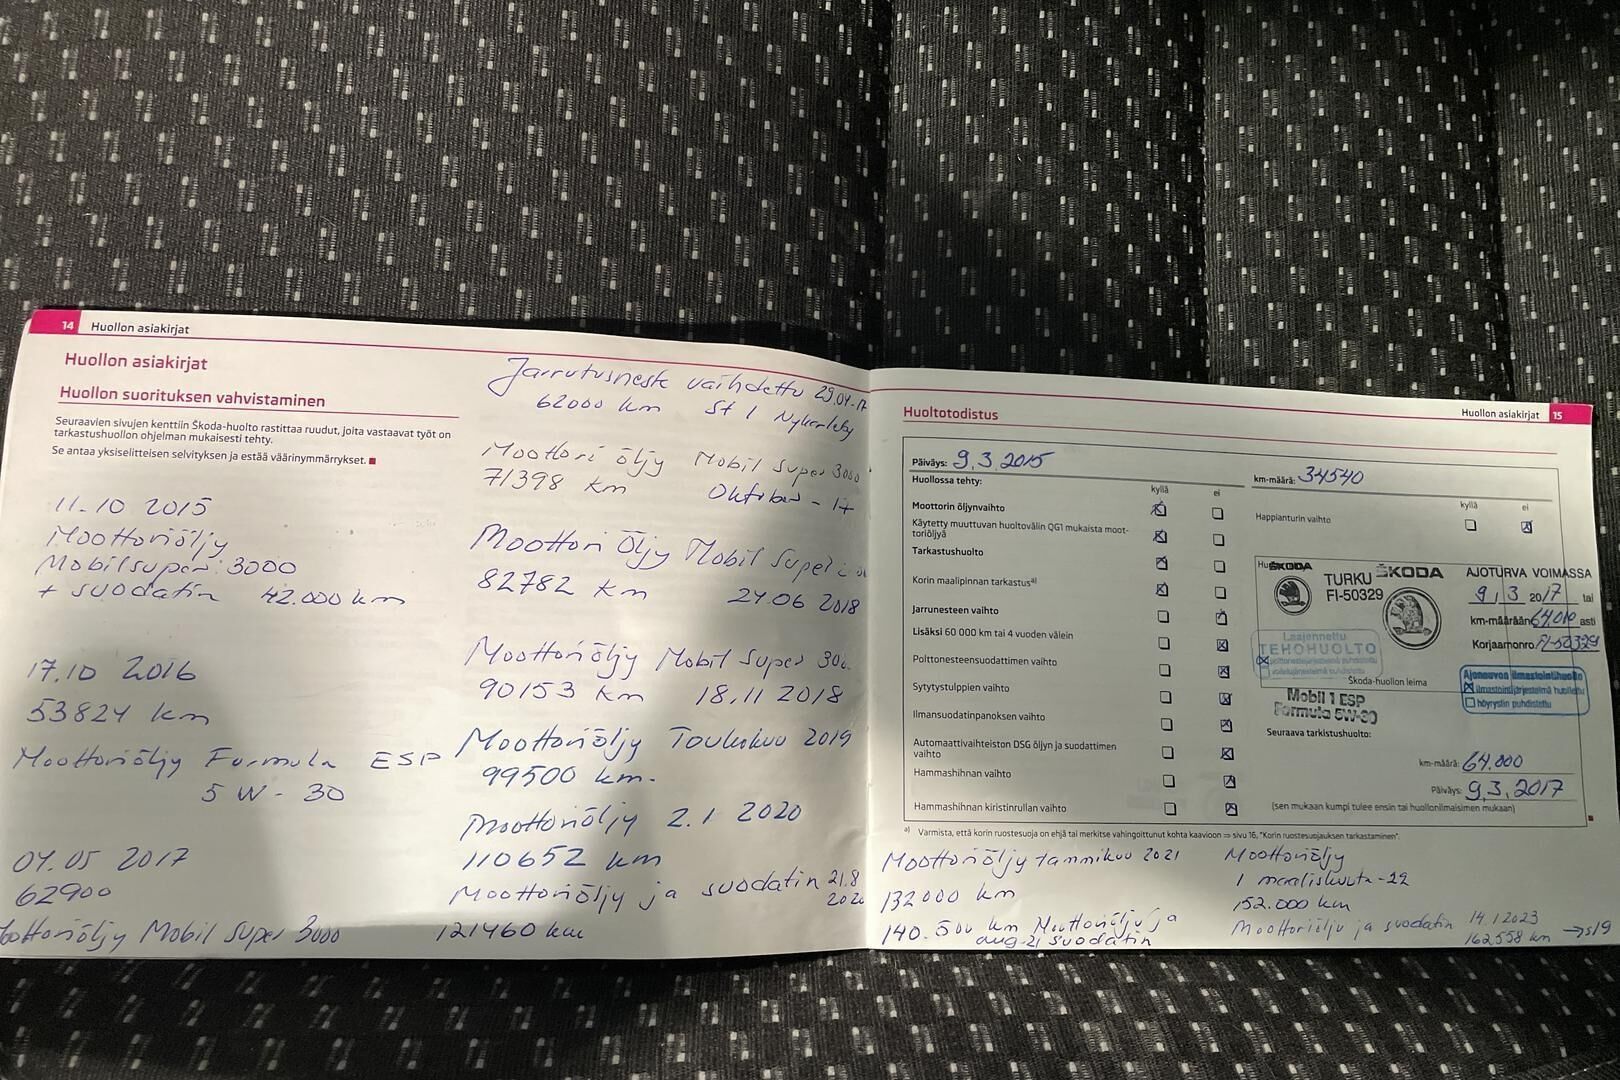 14 Huollon asiakirjat
Huollon asiakirjat
Huollon suorituksen vahvistaminen
Seuraavien sivujen kenttiin Škoda-huolto rastittaa ruudut, joita vastaavat työt on
tarkastushuollon ohjelman mukaisesti tehty.
Se antaa yksiselitteisen selvityksen ja estää väärinymmärrykset.
11.10 2015
Moottoriöljy
Mobil super 3000
+ suodatin 42.000 km
17.10 2016
53824 km
Moottoriöljy Formula ESP
5 W-30
04.05 2017
62900
oottoriöljy Mobil Super 3000
Jarrutusneste vaihdettu 29.04-17
62000 km St 1 Nykarleby
Moottori öljy Mobil Super 3000
71398 km Oktober - 17
Moottori Öljy Mobil Super
82782 km 24.06 2018
Moottoriöljy Mobil Super 300
90153 km 18.11 2018
Moottoriöljy Toukokuu 2019
99500 km.
Moottoriöljy 2.1 2020
110652 km
Moottoriöljy ja suodatin 21.8
2020
121460 km
Huoltotodistus
Huollon asiakirjat 15
Päiväys: 9.3.2015
km-määrä: 34540
Huollossa tehty:
kyllä ei
kyllä ei
Moottorin öljynvaihto
Käytetty muuttuvan huoltovälin QG1 mukaista moot-
toriöljyä
Tarkastushuolto
Korin maalipinnan tarkastus a)
Jarrunesteen vaihto
Lisäksi 60 000 km tai 4 vuoden välein
Polttonesteensuodattimen vaihto
Sytytystulppien vaihto
Ilmansuodatinpanoksen vaihto
Automaattivaihteiston DSG öljyn ja suodattimen
vaihto
Hammashihnan vaihto
Hammashihnan kiristinrullan vaihto
Happianturin vaihto
ŠKODA
TURKU
FI-50329
ŠKODA
AJOTURVA VOIMASSA
9.3 2017 tai
km-määrään 64010 asti
Korjaamonro. FI-50329
Laajennettu
TEHOHUOLTO
polttonestejärjestelmä puhdistettu
voitelujärjestelmä puhdistettu
Škoda-huollon leima
Mobil 1 ESP
Formula 5W-30
Ajoneuvon ilmastointihuolto
ilmastointijärjestelmä huollettu
höyrystin puhdistettu
Seuraava tarkistushuolto:
km-määrä: 64.000
Päiväys: 9.3.2017
(sen mukaan kumpi tulee ensin tai huollonilmaisimen mukaan)
a) Varmista, että korin ruostesuoja on ehjä tai merkitse vahingoittunut kohta kaavioon ⇒ sivu 16, "Korin ruostesuojauksen tarkastaminen".
Moottoriöljy tammikuu 2021
132000 km
140.500 km Moottoriöljy ja
aug-21 suodatin
Moottoriöljy
1 maaliskuuta -22
152.000 km
Moottoriöljy ja suodatin 14.1 2023
162558 km → s19